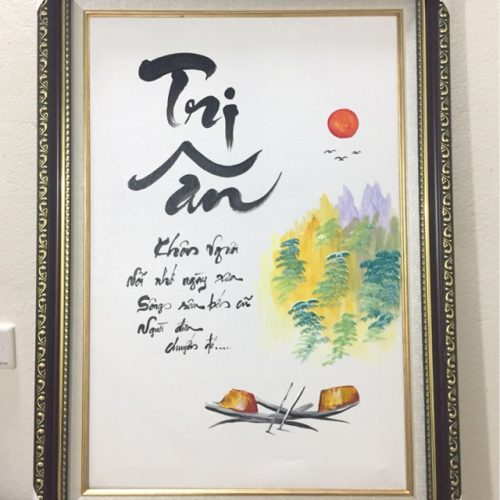 Tri
Ân
Khôn Nguôi
Nỗi nhớ ngày xưa
Sông xưa bến cũ
Người đưa
chuyến đò....